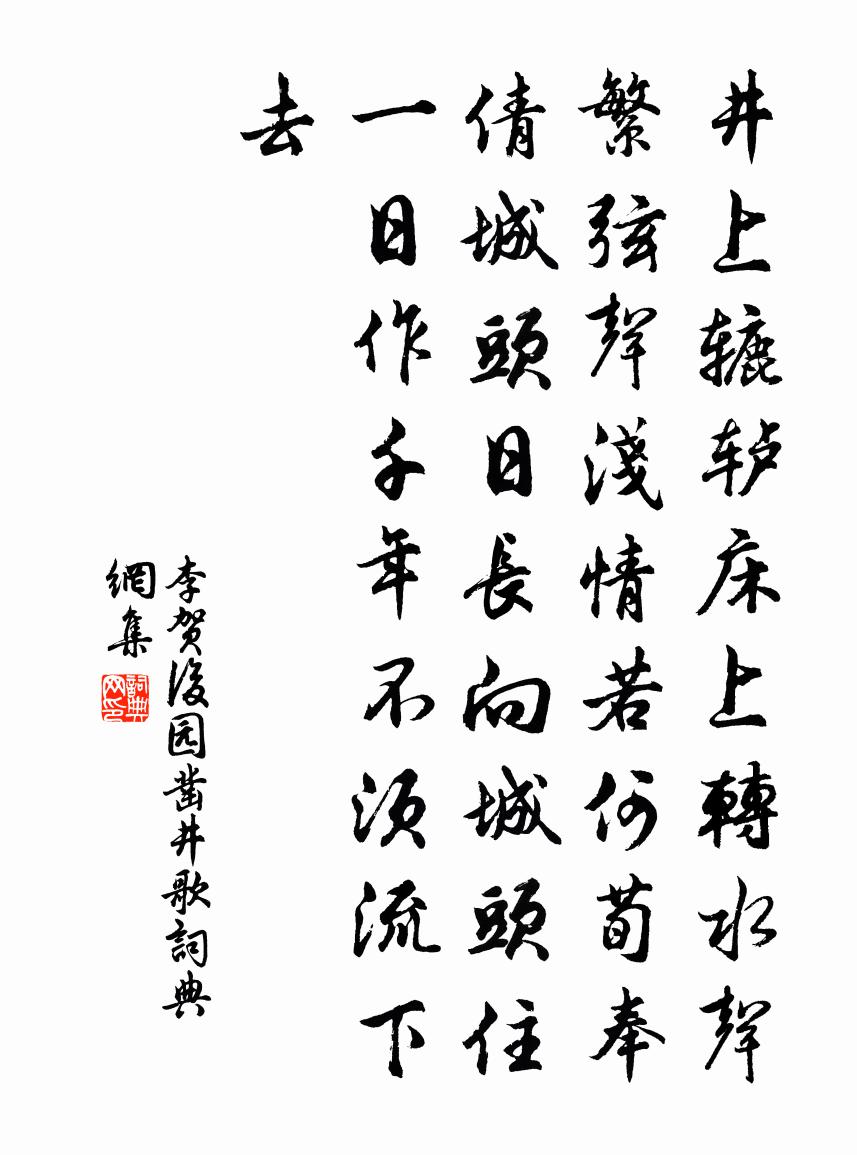 井上辘轳床上轉水聲
繁弦聲淺情若何荀奉
倩城頭日長向城頭住
一日作千年不須流下
去
李贺後园凿井歌詞典
網集
詞典网印